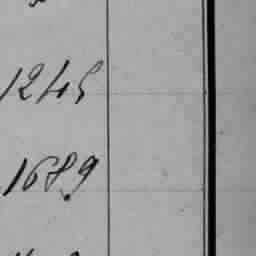 1245
1689